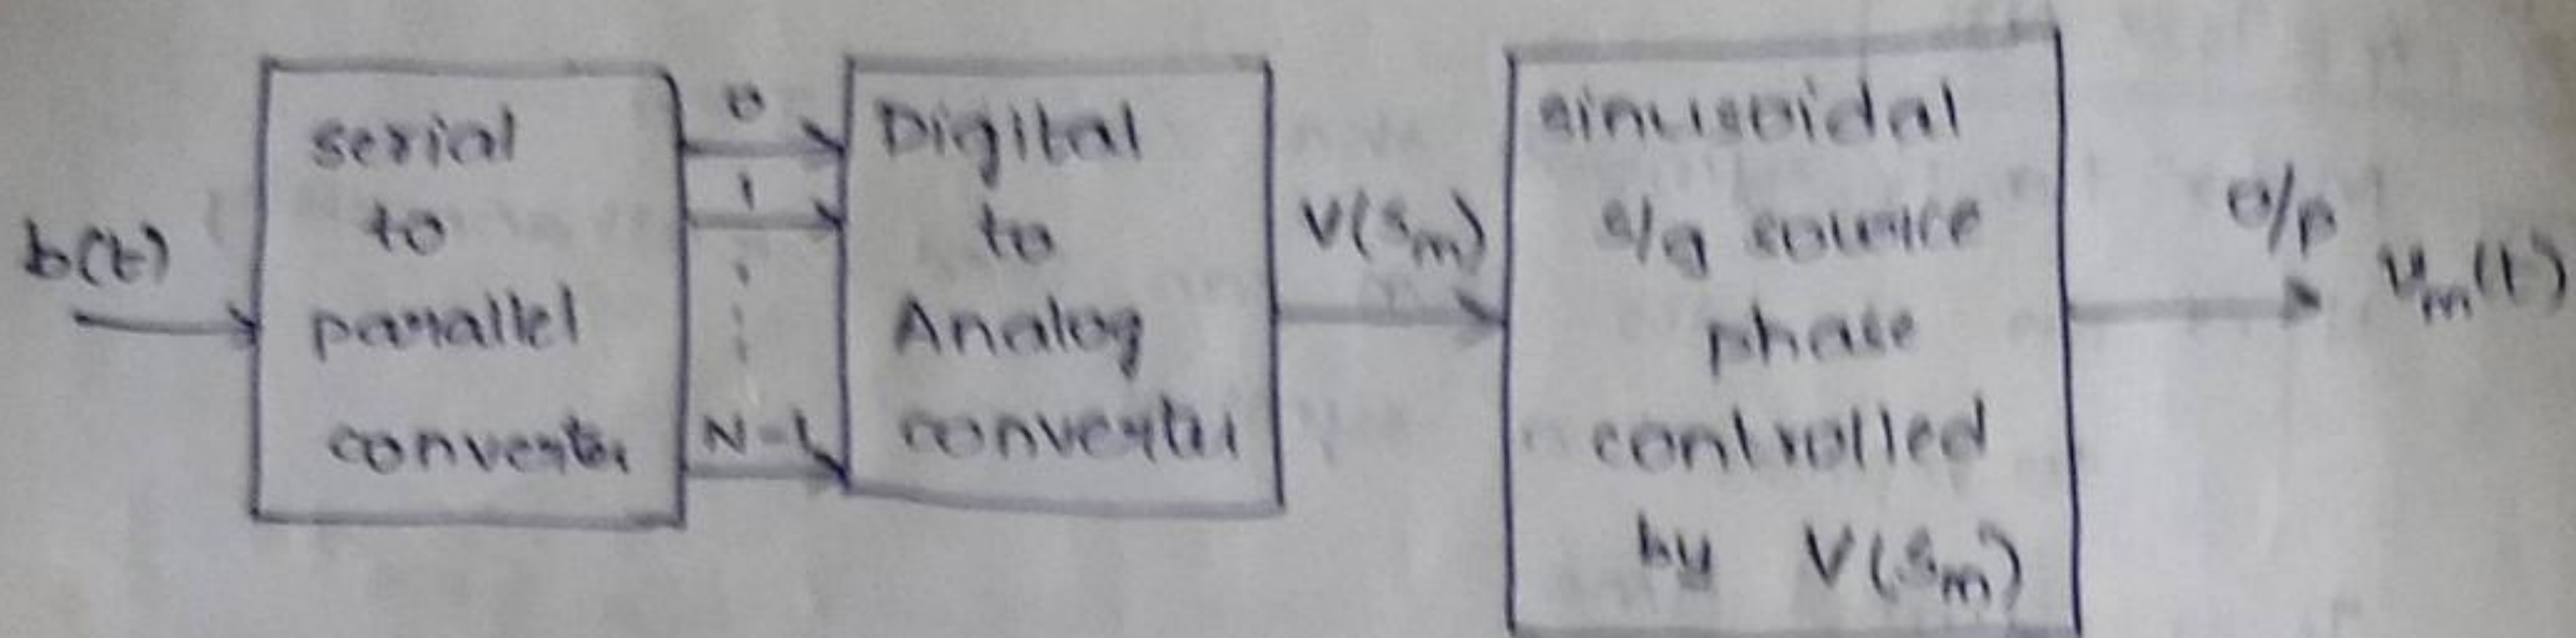 b(t)
serial
to
parallel
converter
0
1
N-1
Digital
to
Analog
converter
V(Sm)
sinusoidal
s/g source
phase
controlled
by V(Sm)
o/p
Vm(t)